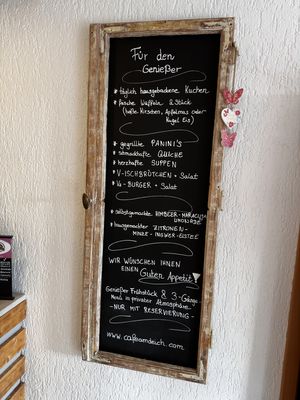 Für den
Genießer
* täglich hausgebackene Kuchen
* frische Waffeln 2 Stück
(heiße Kirschen, Apfelmus oder
Kugel Eis)
* gegrillte PANINI'S
* schmackhafte QUICHE
* herzhafte SUPPEN
* V-ISCHBRÖTCHEN + Salat
* V-BURGER + Salat
* selbstgemachte HIMBEER-MARACUJA
LIMONADE
* hausgemachter ZITRONEN-
MINZE-INGWER-EISTEE
WIR WÜNSCHEN IHNEN
EINEN Guten Appetit!
Genießer Frühstück & 3-Gänge-
Menü in privater Atmosphäre
-NUR MIT RESERVIERUNG-
www.cafeamdeich.com